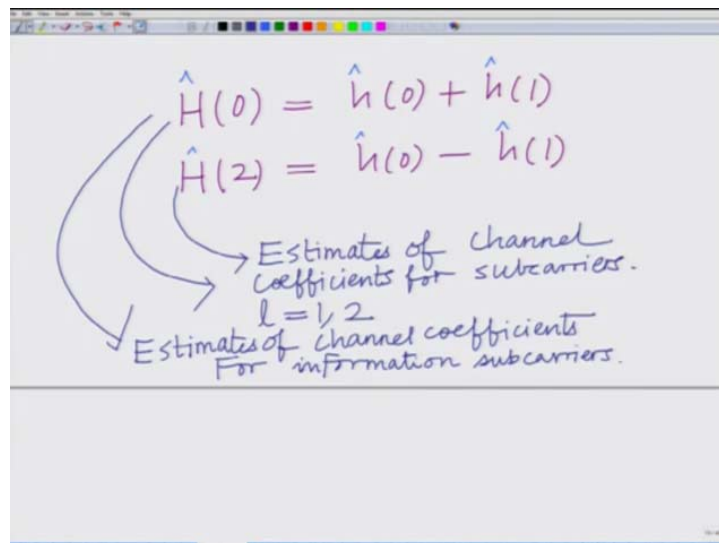 Ĥ(0) = ĥ(0) + ĥ(1)
Ĥ(2) = ĥ(0) − ĥ(1)
Estimates of channel
coefficients for subcarriers.
l = 1, 2
Estimates of channel coefficients
For information subcarriers.